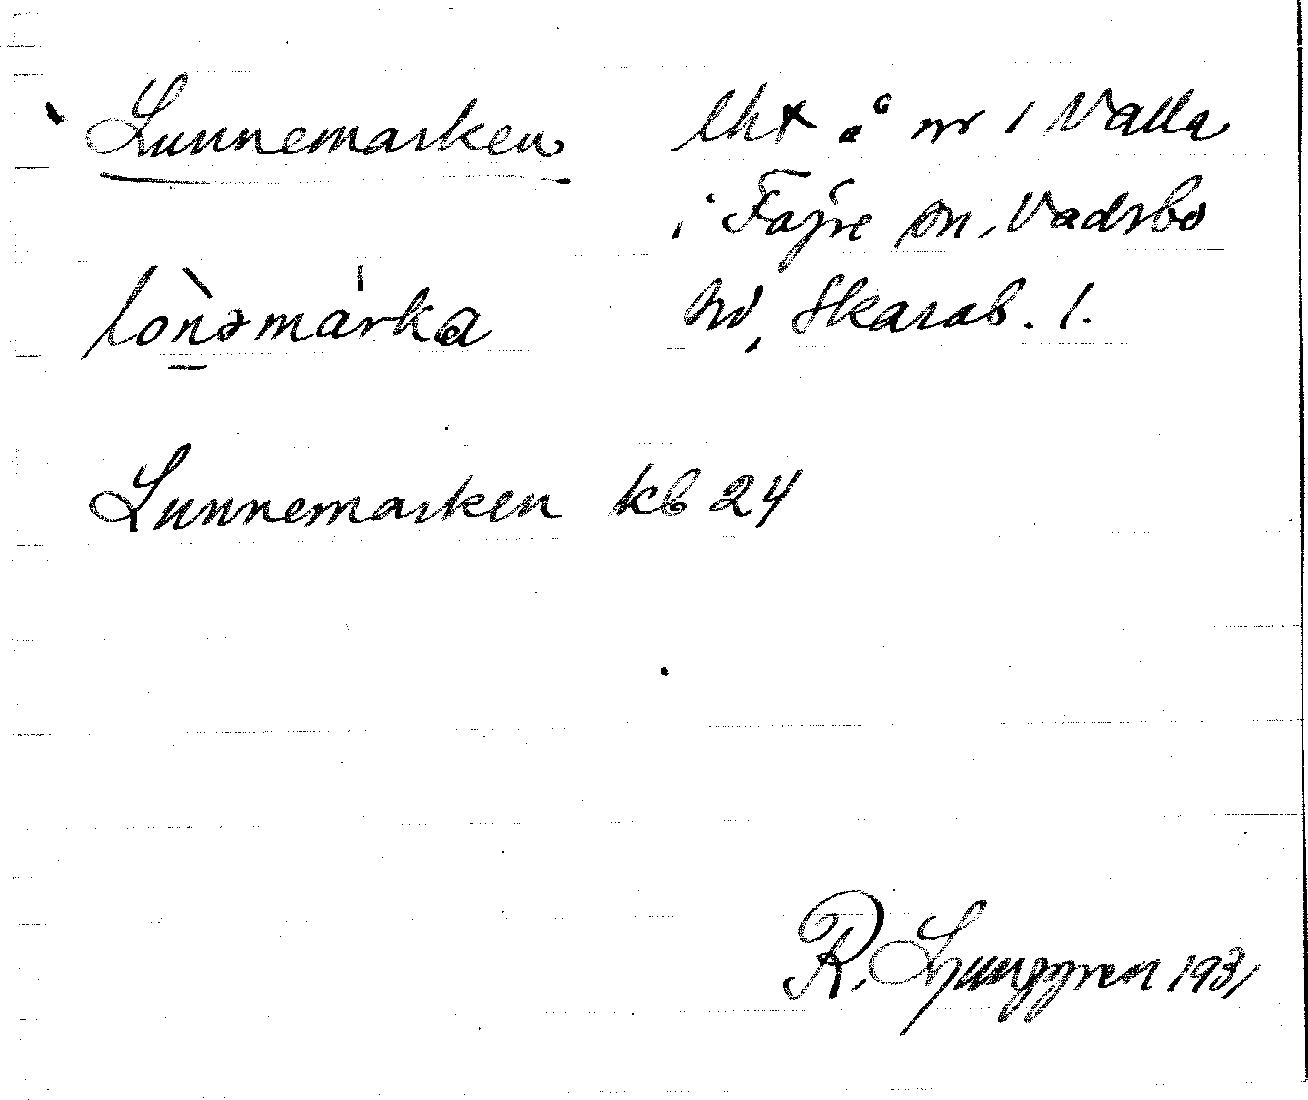 Lunnemarken lht å nr 1 Valla
i Fägre sn, Vadsbo
lònəmárka hd, Skarab. l.
Lunnemarken kb 24
R. Ljunggren 1931